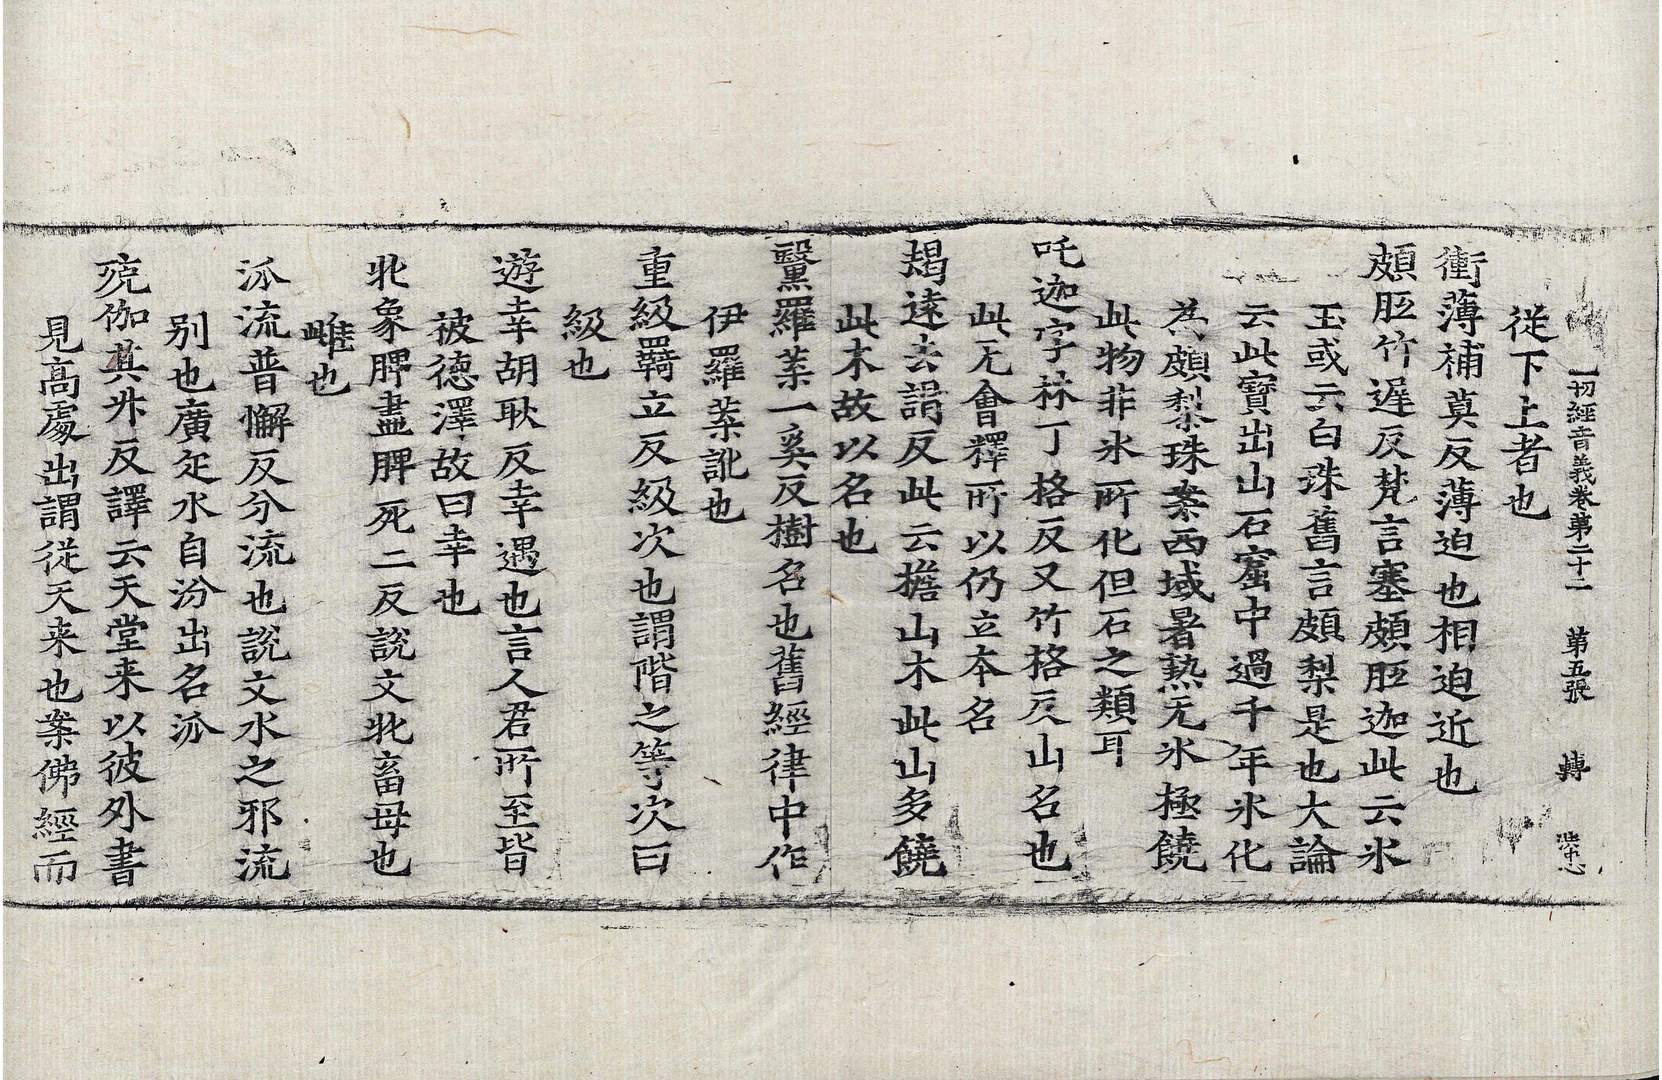 一切經音義卷第二十二 第五張 轉
從下上者也
衝薄補莫反薄迫也相迫近也
頗胝竹遲反梵言塞頗胝迦此云水
玉或云白珠舊言頗梨是也大論
云此寶出山石窟中過千年氷化
為頗梨珠案西域暑熱无氷極饒
此物非氷所化但石之類耳
吒迦字林丁格反又竹格反山名也
此无會釋所以仍立本名
朅達去謁反此云擔山木此山多饒
此木故以名也
黳羅葉一奚反樹名也舊經律中作
伊羅葉訛也
重級羇立反級次也謂階之等次曰
級也
遊幸胡耿反幸遇也言人君所至皆
被德澤故曰幸也
牝象脾盡脾死二反說文牝畜母也
雌也
派流普懈反分流也說文水之邪流
別也廣疋水自汾出名派
殑伽其升反譯云天堂来以彼外書
見高處出謂從天来也案佛經而